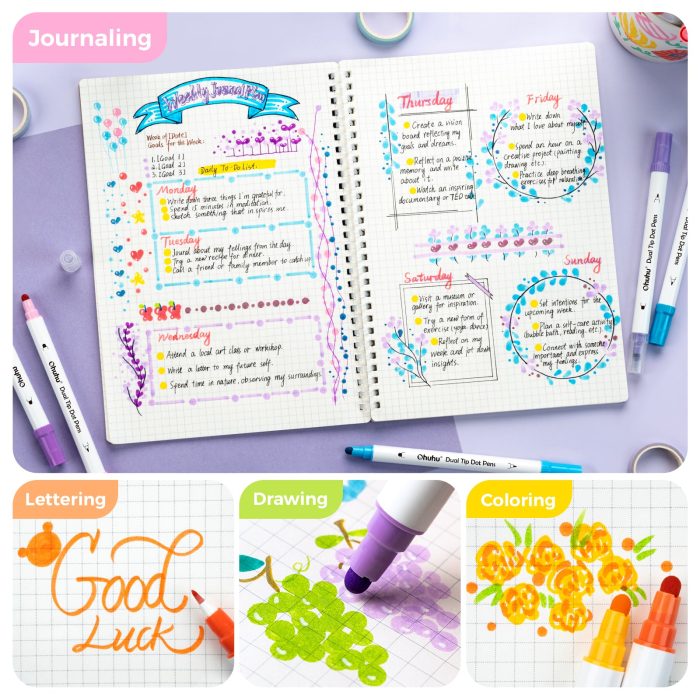 Journaling
Weekly Journal Plan
Week of [Date]
Goals for the Week:
1. [Goal 1]
2. [Goal 2]
3. [Goal 3]
Daily To-Do List.
Monday
Write down three things I'm grateful for.
Spend 15 minutes in meditation.
Sketch something that inspires me.
Tuesday
Journal about my feelings from the day.
Try a new recipe for dinner.
Call a friend or family member to catch up.
Wednesday
Attend a local art class or workshop.
Write a letter to my future self.
Spend time in nature, observing my surroundings.
Thursday
Create a vision
board reflecting my
goals and dreams.
Reflect on a
memory and write
about it.
Watch an inspiring
documentary or TED talk.
Friday
Write down
what I love about myself.
Spend an hour on a
creative project (painting,
drawing, etc).
Practice deep breathing
exercises for
Saturday
Visit a museum or
gallery for inspiration.
Try a new form of
exercise (yoga, dance).
Reflect on my
week and jot down
insights.
Sunday
Set intentions for the
upcoming week.
Plan a self-care activity
(bubble bath, reading, etc).
Connect with someone
important and express
my feelings.
Ohuhu Dual Tip Dot Pens
Ohuhu Dual Tip Dot Pens
Ohuhu
Ohuhu Dual Tip Dot Pens
Lettering
Good
Luck
Drawing
Coloring